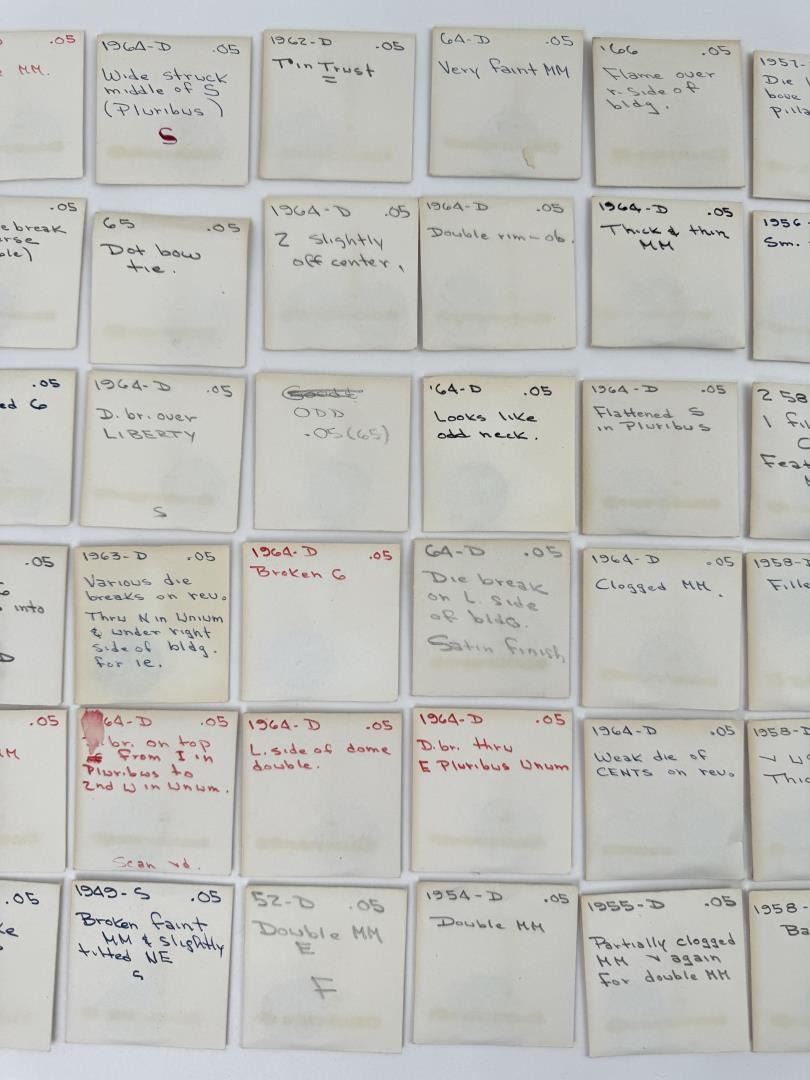 .05
MM.
1964-D .05
Wide struck
middle of S
(Pluribus)
S
1962-D .05
T in Trust
64-D .05
Very faint MM
'66 .05
Flame over
r. side of
bldg.
1957-
Die
bove
pilla
.05
e break
erse
ble)
65 .05
Dot bow
tie.
1964-D .05
2 slightly
off center.
1964-D .05
Double rim-ob.
1964-D .05
Thick & thin
MM
1956-
Sm.
.05
ed 6
1964-D .05
D. br. over
LIBERTY
S
ODD
.05(65)
'64-D .05
Looks like
odd neck.
1964-D .05
Flattened S
in Pluribus
2 58
1 fil
C
Feat
.05
6
into
D
1963-D .05
Various die
breaks on rev.
Thru N in Unium
& under right
side of bldg.
for ie.
1964-D .05
Broken 6
64-D .05
Die break
on L. side
of bldg.
Satin finish
1964-D .05
Clogged MM.
1958-D
Fille
.05
M
64-D .05
D.br. on top
from I in
Pluribus to
2nd U in Unum.
Scan rd.
1964-D .05
L. side of dome
double.
1964-D .05
D. br. thru
E Pluribus Unum
1964-D .05
Weak die of
CENTS on rev.
1958-D
Thic
.05
ke
1949-S .05
Broken faint
MM & slightly
tilted NE
S
52-D .05
Double MM
E
F
1954-D .05
Double MM
1955-D .05
Partially clogged
MM v again
for double MM
1958-
Ba